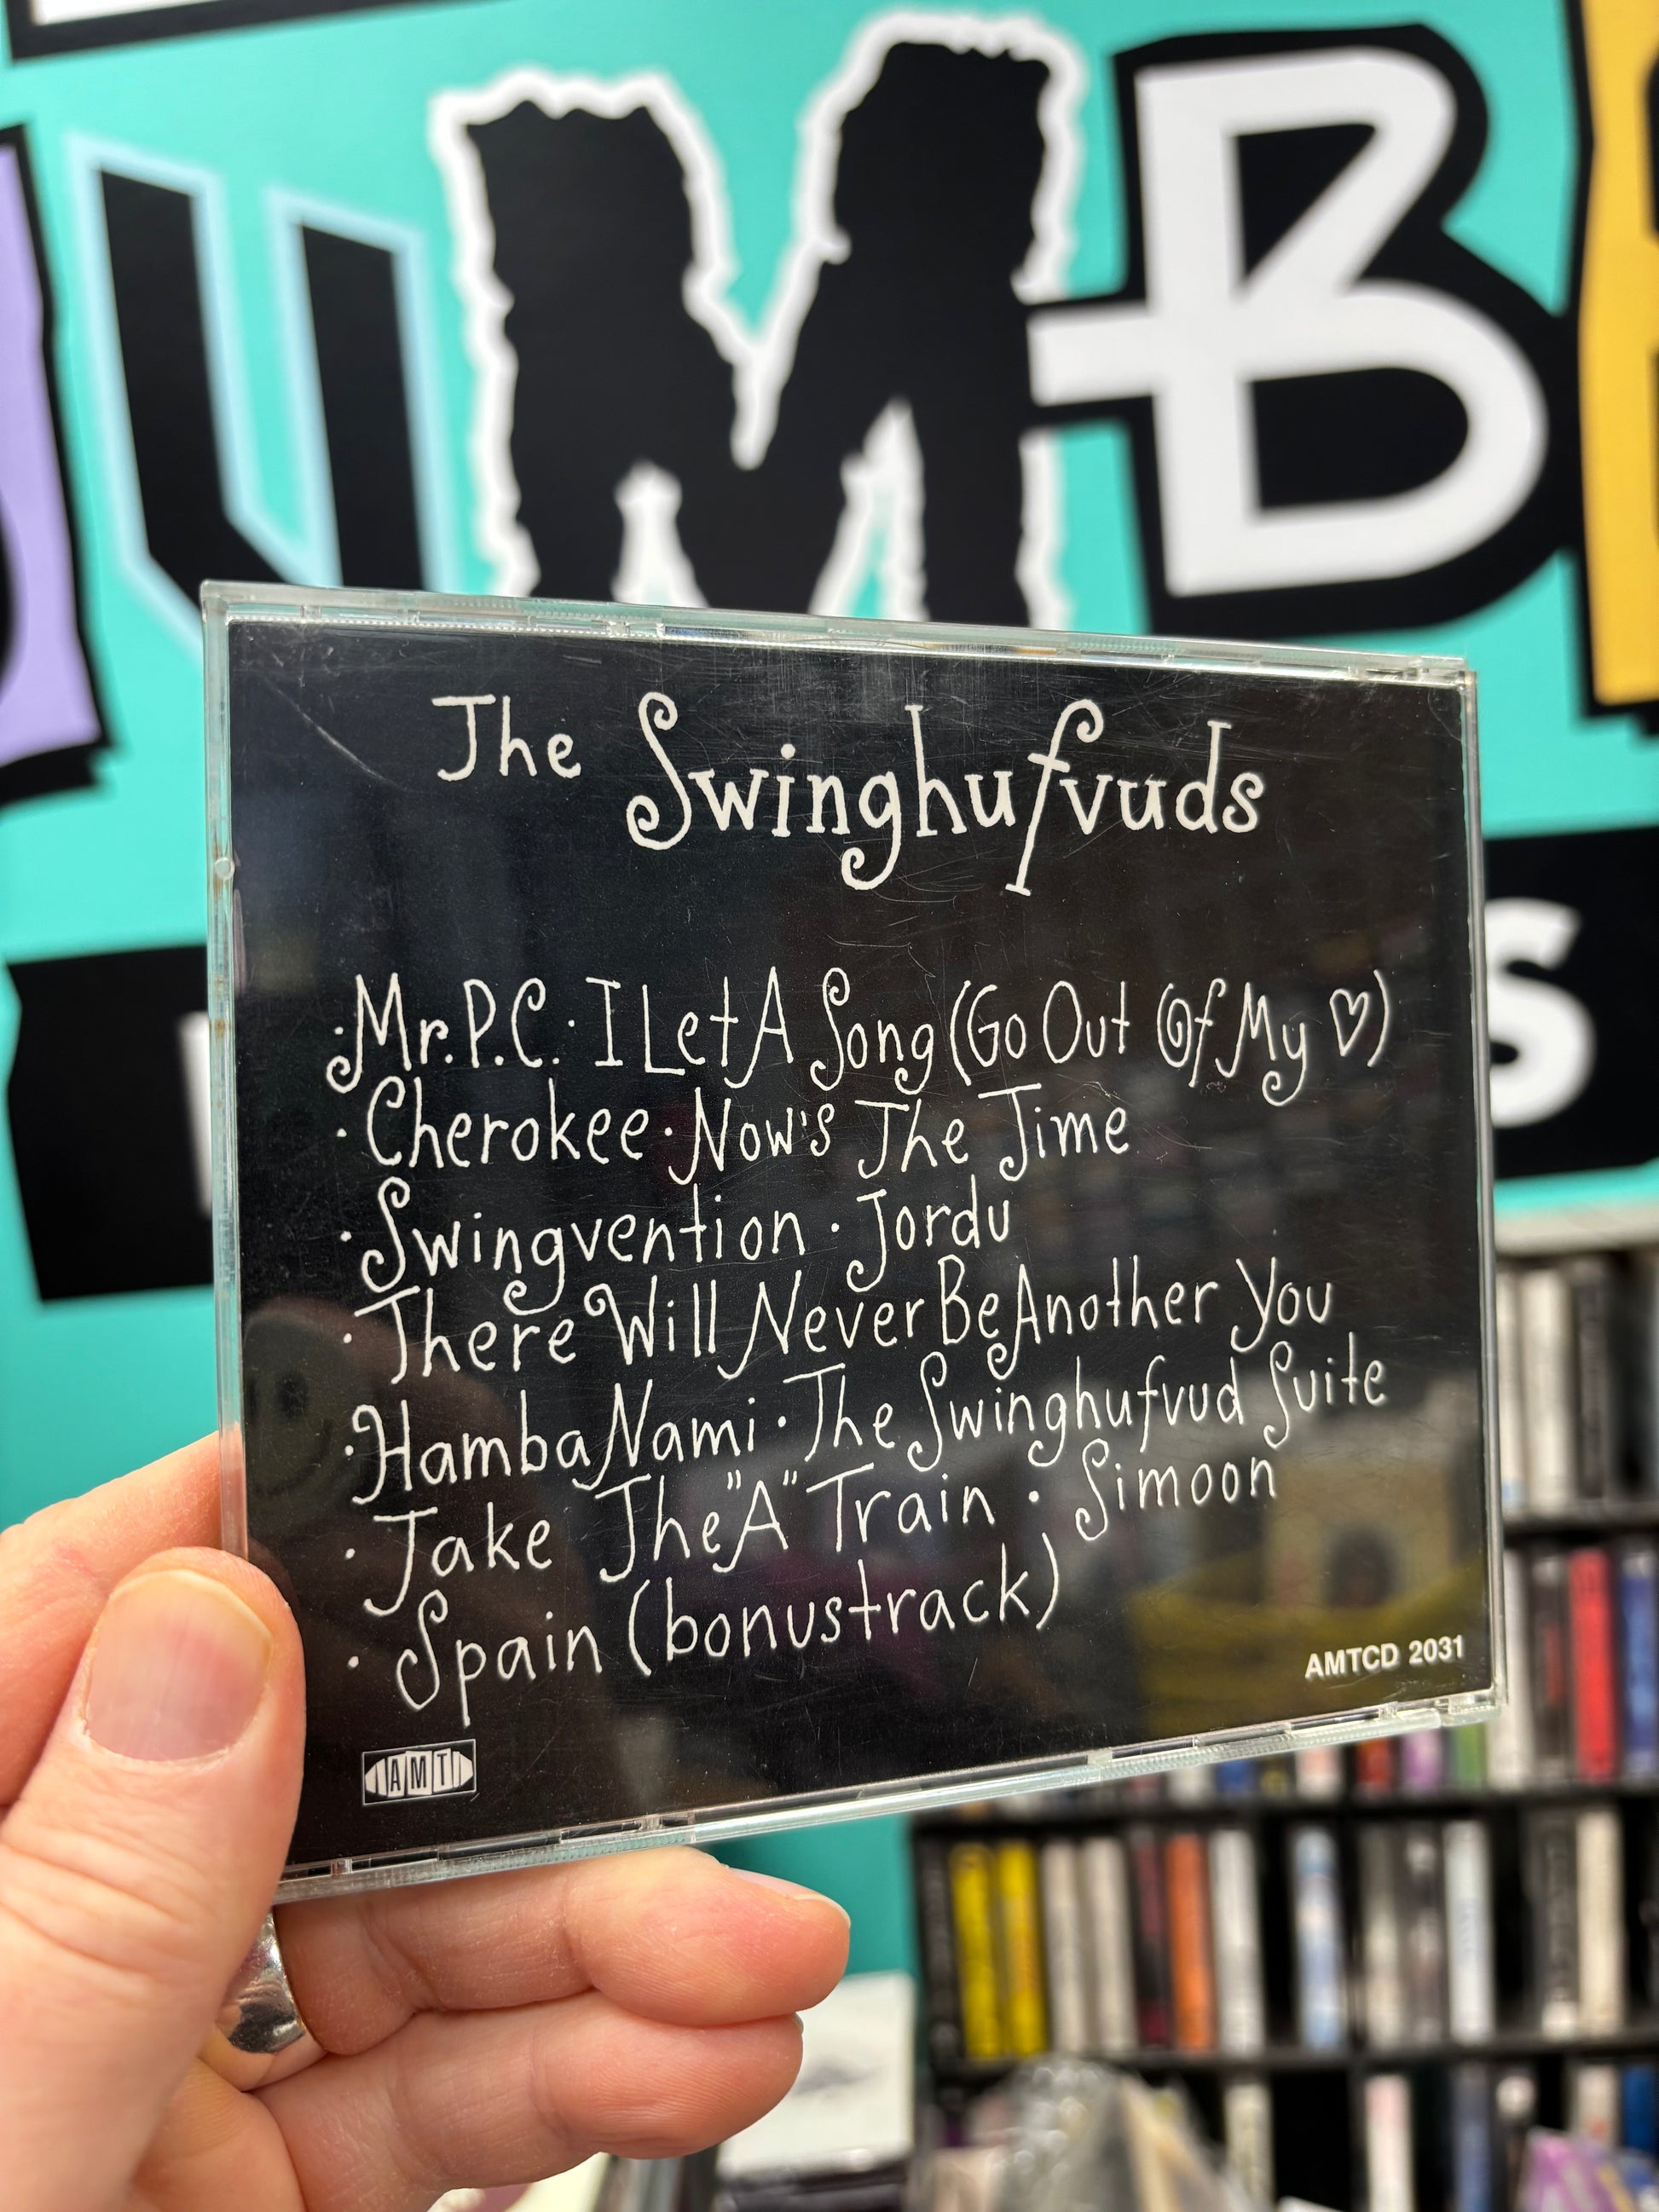 UMB
S
The Swinghufvuds
·Mr.P.C. · I Let A Song (Go Out Of My ♡)
· Cherokee · Now's The Time
· Swingvention · Jordu
· There Will Never Be Another You
· Hamba Nami · The Swinghufvud Suite
· Take The "A" Train · Simoon
· Spain (bonustrack)
AMTCD 2031
AMT